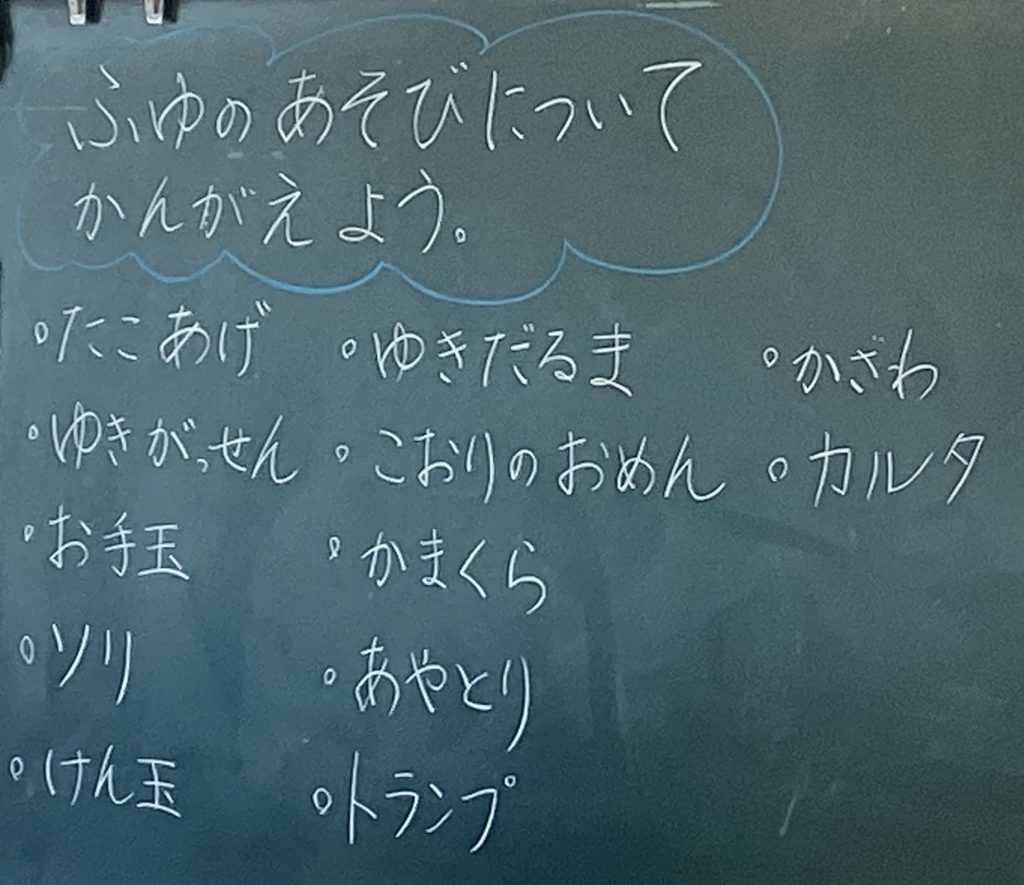 ふゆのあそびについて
かんがえよう。
。たこあげ
。ゆきがっせん
。お手玉
。ソリ
。けん玉
。ゆきだるま
。こおりのおめん
。かまくら
。あやとり
。トランプ
。かざわ
。カルタ